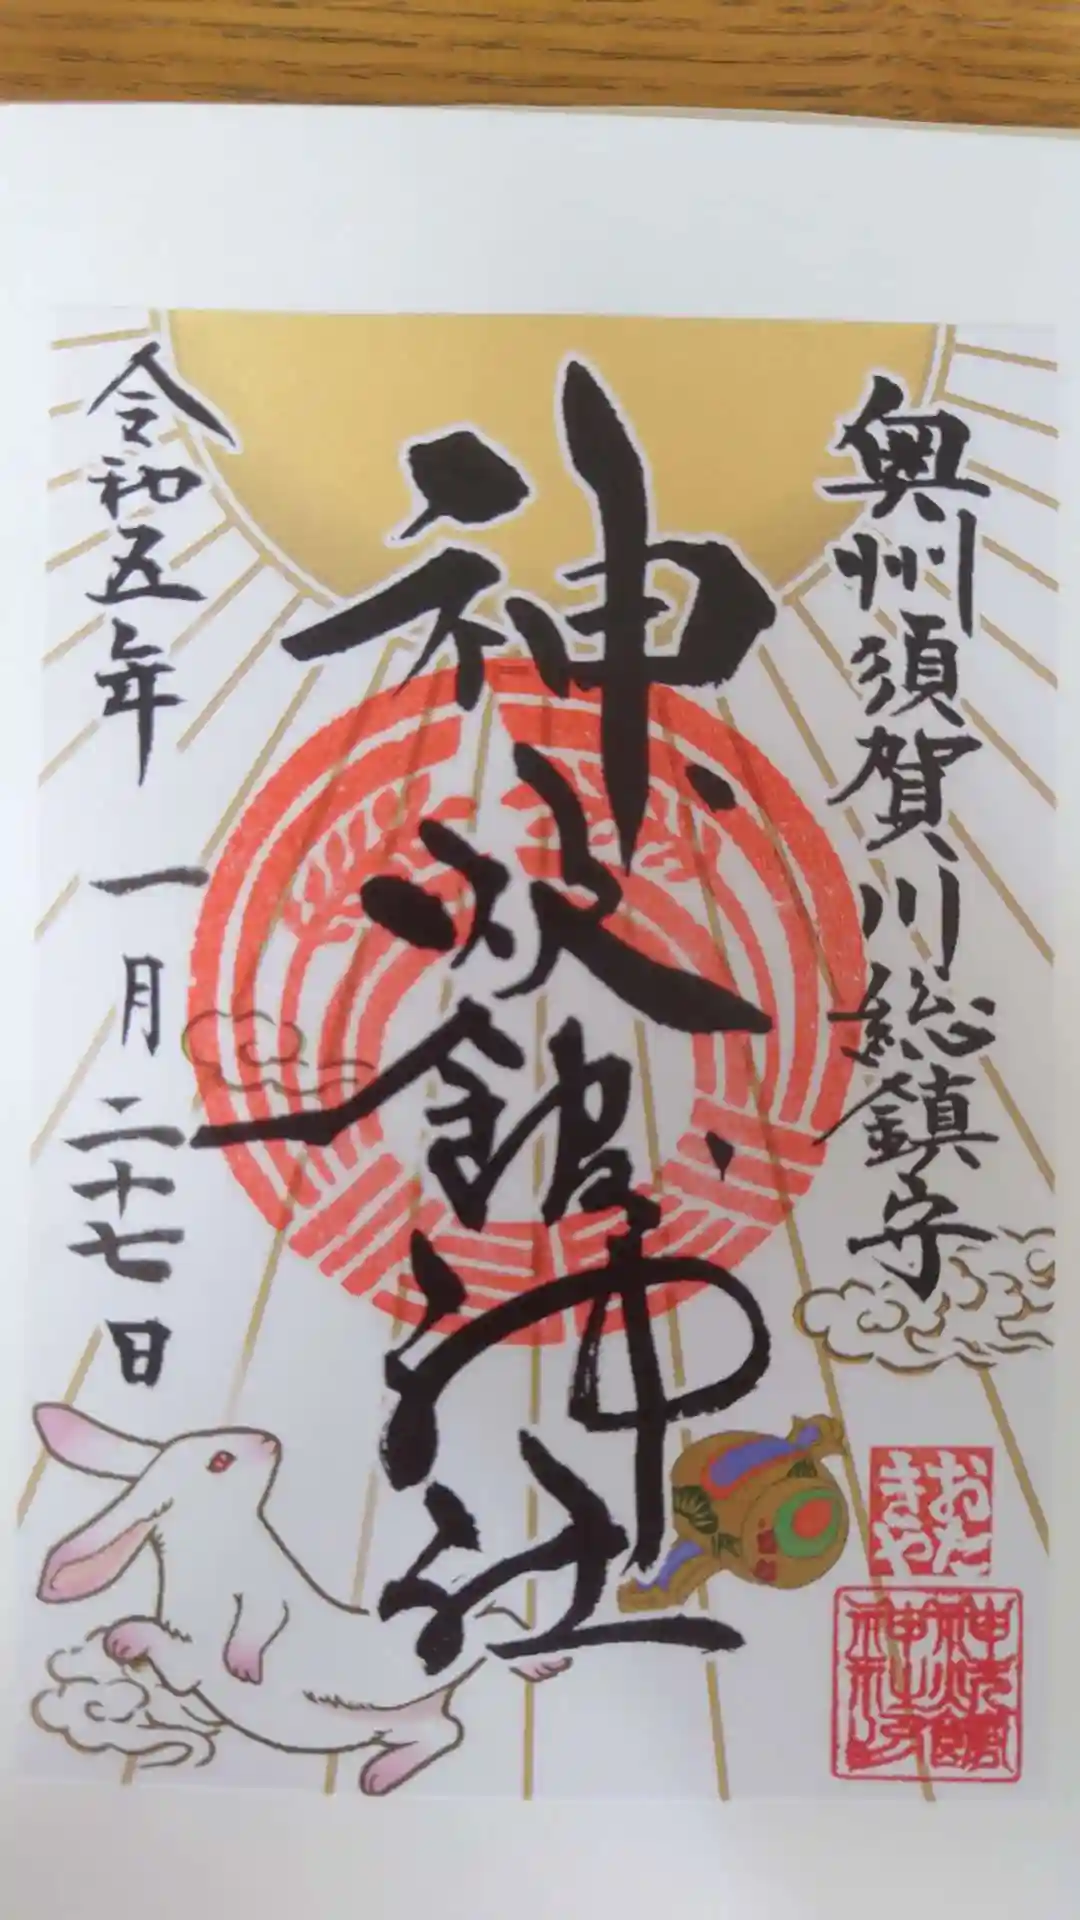 奥州須賀川総鎮守
神炊館神社
令和五年 一月二十七日
おた
きや
神炊館
神社